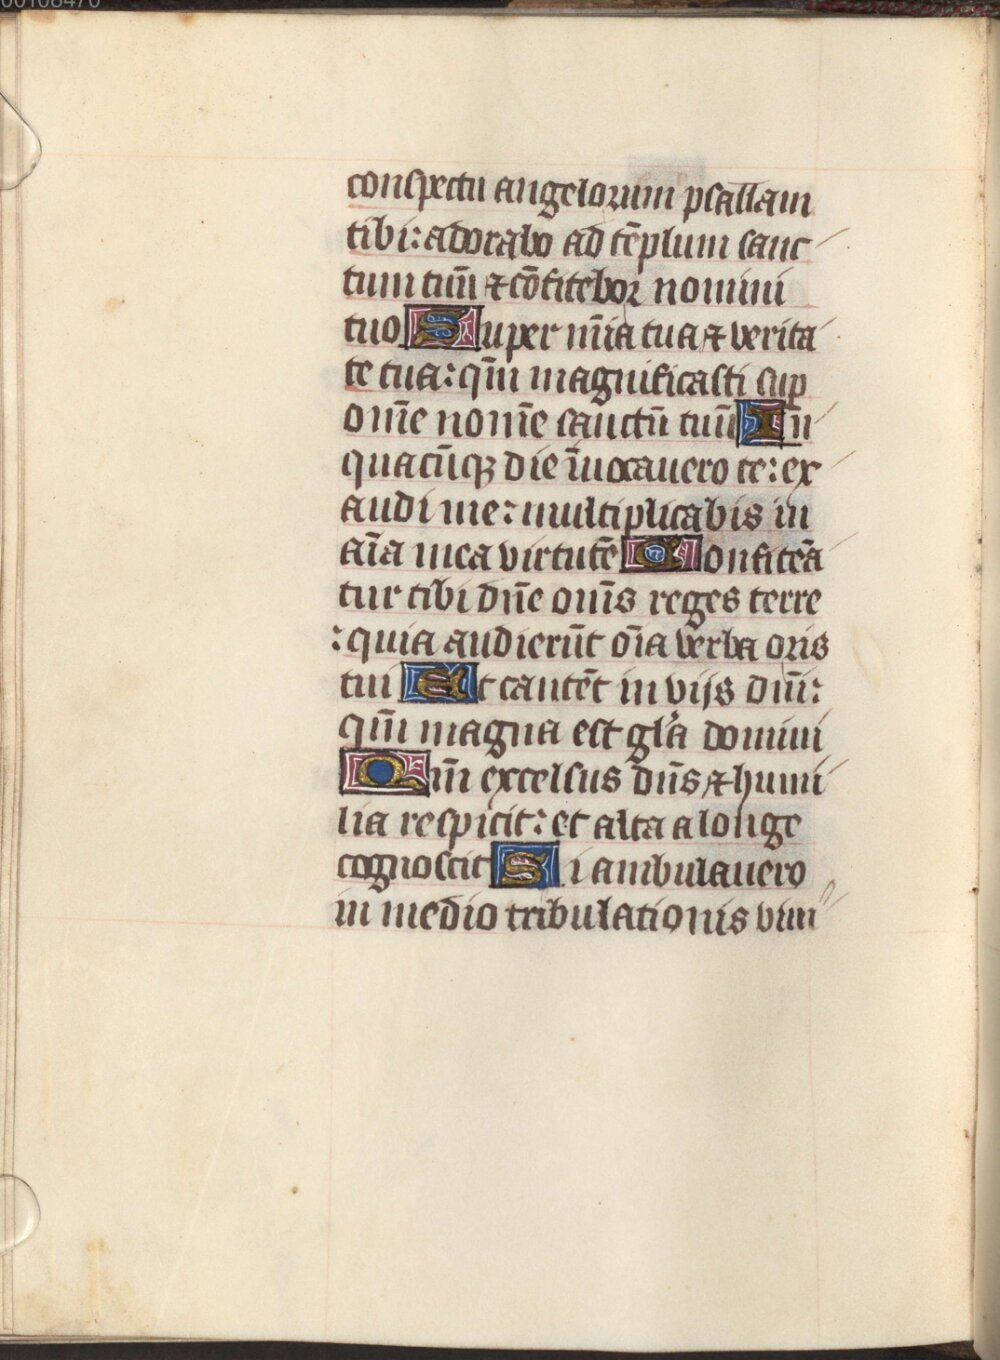 conspectu angelorum psallam
tibi: adorabo ad tēplum sanc
tum tuū ⁊ cōfitebor nomini
tuo Super mīa tua ⁊ verita
te tua: qm̄ magnificasti sup
om̄e nom̄e sanctū tuū In̄
quacūqꝫ die īuocauero te: ex
audi me: multiplicabis in
aīa mea virtutē Confiteā
tur tibi dn̄e om̄s reges terre
: quia audierūt oīa verba oris
tui Et cantēt in vijs dn̄i:
qm̄ magna est gl̄a domini
Qm̄ excelsus dn̄s ⁊ humi
lia respicit: et alta a longe
cognoscit Si ambulauero
in medio tribulationis viui